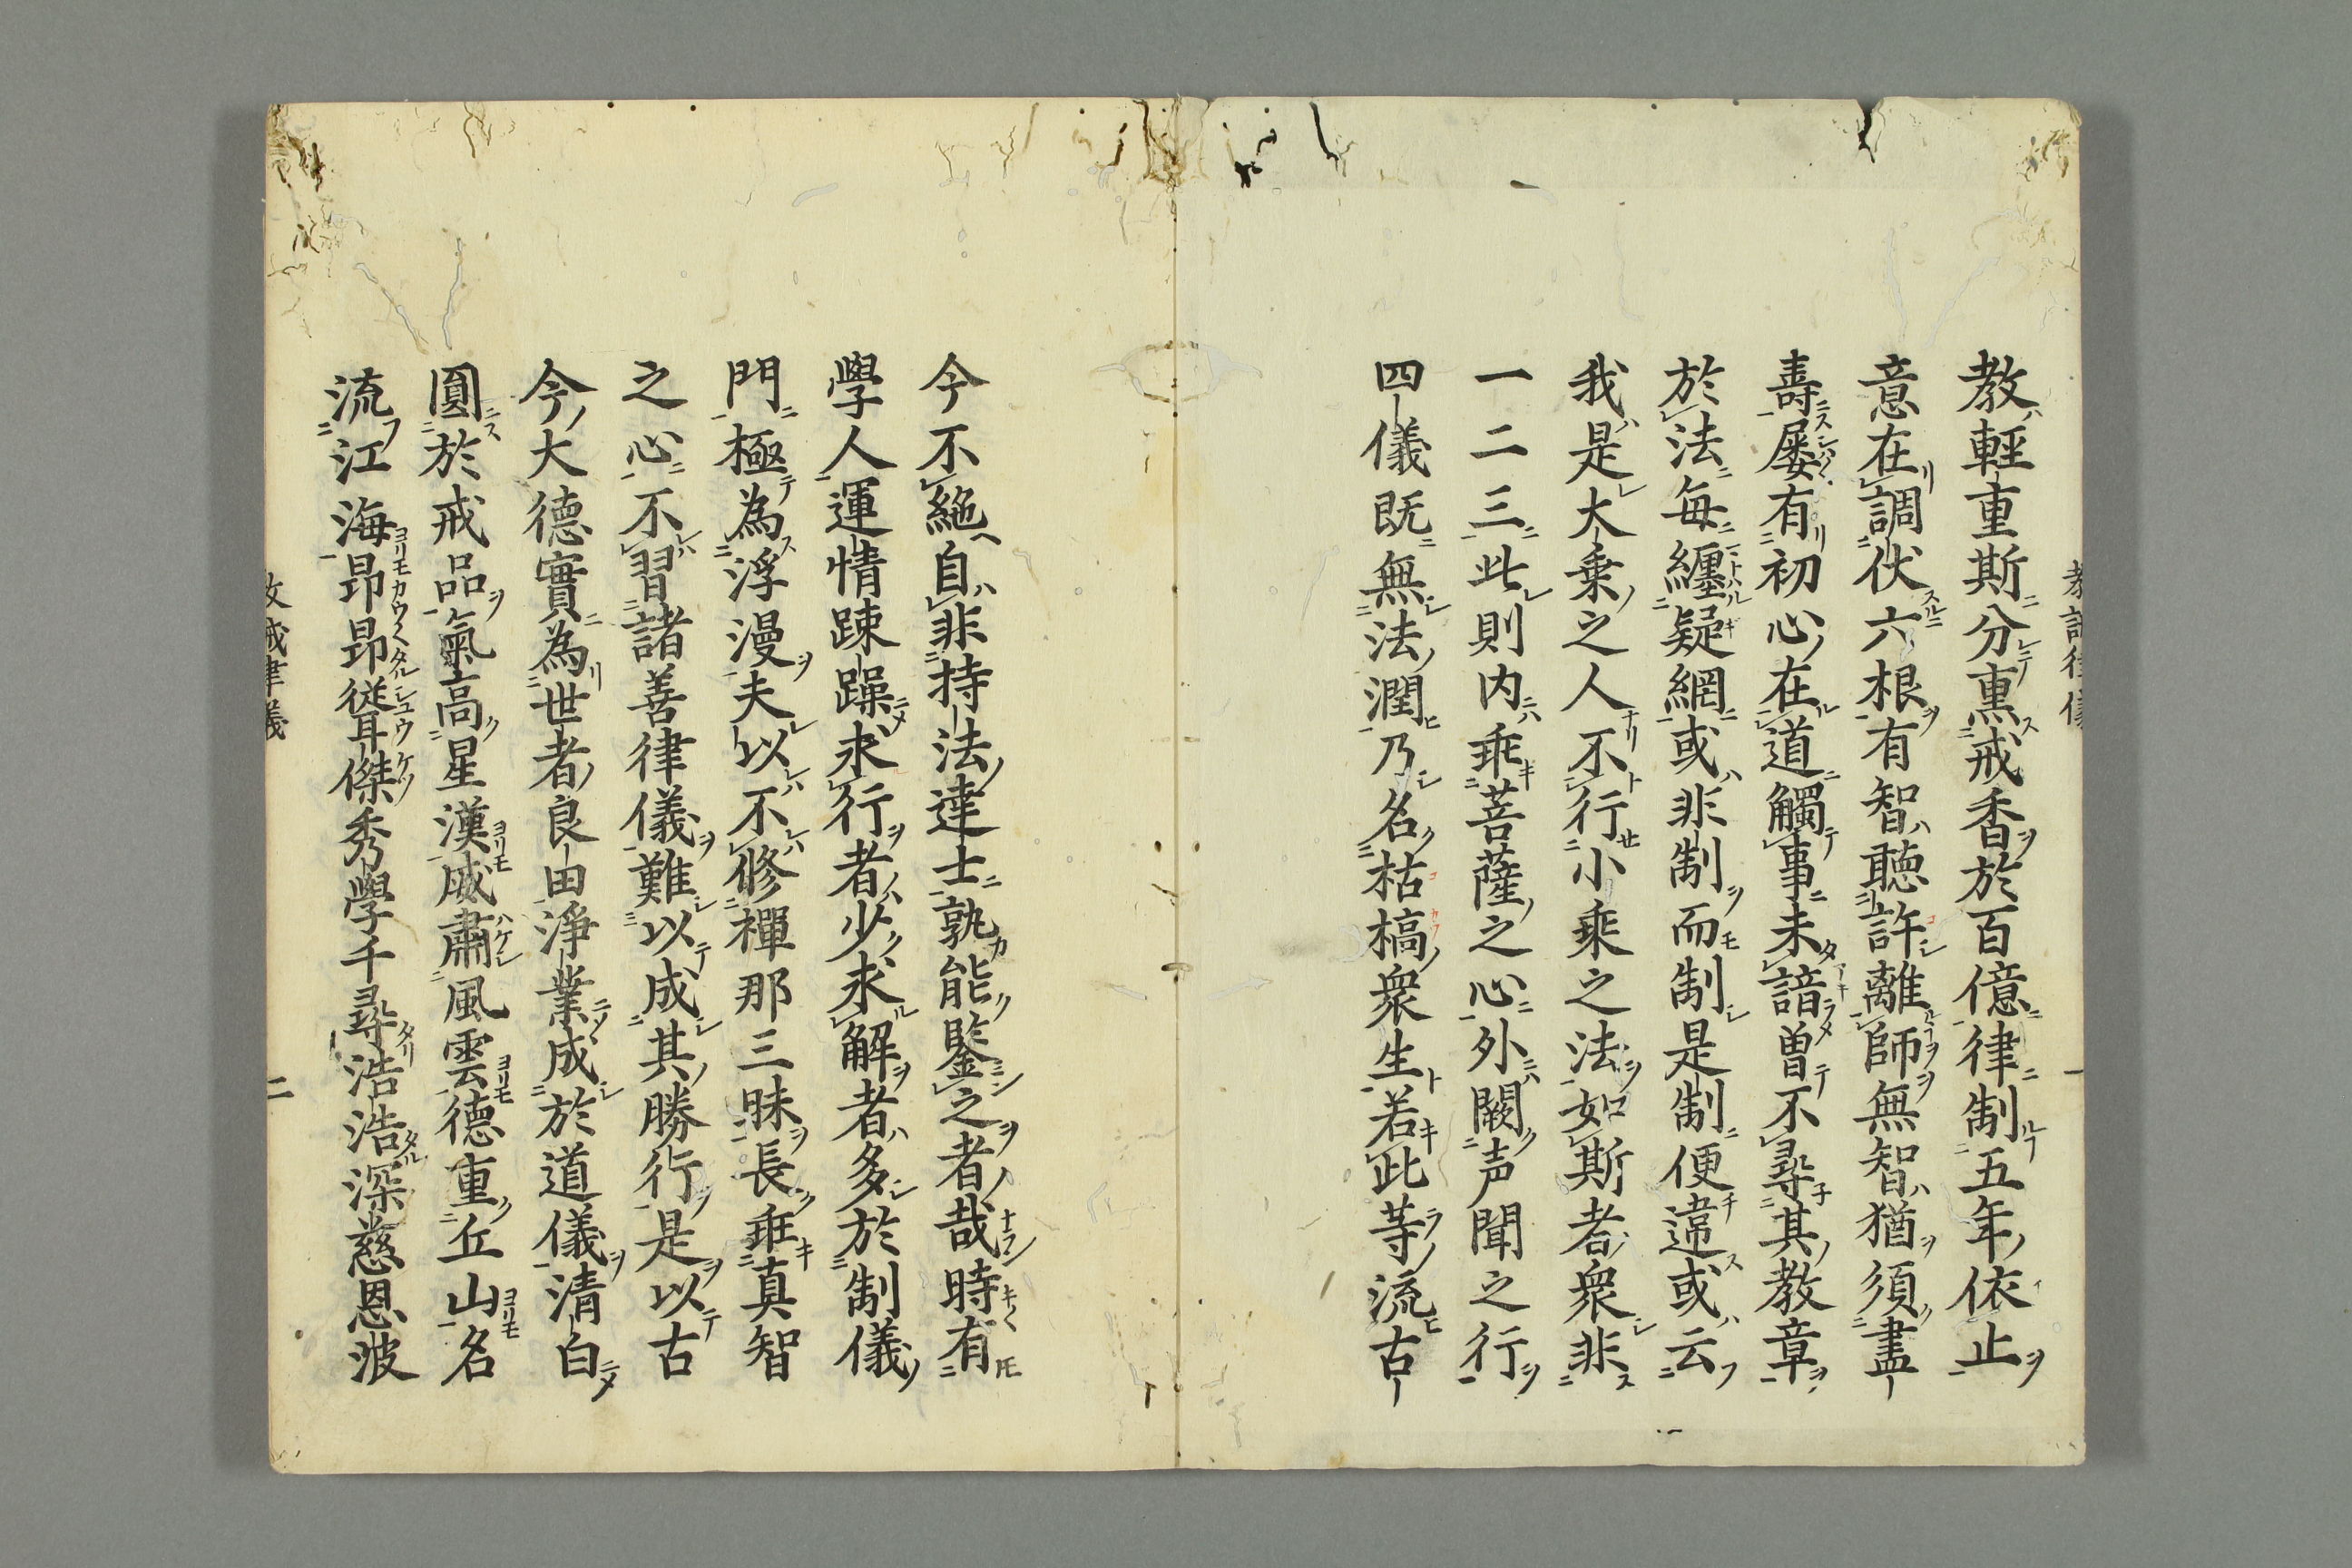 教輕重斯分熏戒香於百億律制五年依止
意在調伏六根有智聴許離師無智猶須盡
壽屡有初心在道觸事未諳曽不尋其教章
於法毎纏疑網或非制而制是制便違或云
我是大乗之人不行小乗之法如斯者衆非
一二三此則内乖菩薩之心外闕声聞之行
四儀既無法潤乃名枯槁衆生若此等流古
今不絶自非持法達士孰能鑒之者哉時有
學人運情踈躁求行者少求解者多於制儀
門極為浮漫夫以不修禪那三昧長乖真智
之心不習諸善律儀難以成其勝行是以古
今大德實為世者良由淨業成於道儀清白
圓於戒品氣高星漢威肅風雲德重丘山名
流江海昂昂聳傑秀學千尋浩浩深慈恩波
教誡律儀
二